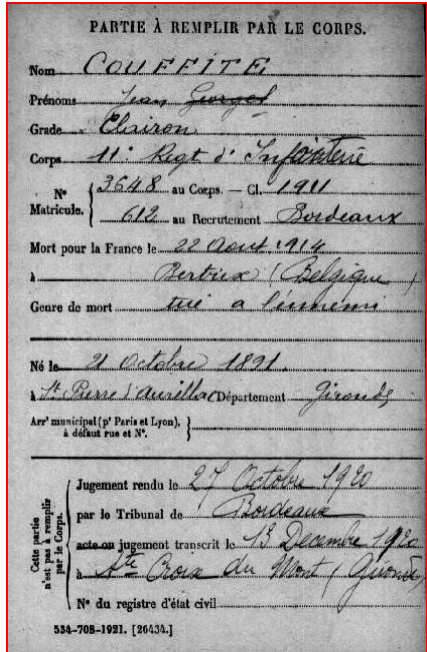 PARTIE À REMPLIR PAR LE CORPS.
Nom COUFFITE
Prénoms Jean Georges
Grade Clairon
Corps 11e Regt d'Infanterie
N° Matricule. { 3648 au Corps. — Cl. 1911
612 au Recrutement Bordeaux
Mort pour la France le 22 Aout 1914
à Bertrix (Belgique)
Genre de mort tué a l'ennemi
Né le 21 Octobre 1891.
à St Pierre d'Aurillac Département Gironde
Arrt municipal (pr Paris et Lyon), à défaut rue et N°. }
Cette partie n'est pas à remplir par le Corps.
Jugement rendu le 27 Octobre 1920
par le Tribunal de Bordeaux
acte ou jugement transcrit le 13 Decembre 1920
à Ste Croix du Mont (Gironde)
N° du registre d'état civil
534-708-1921. [26434.]